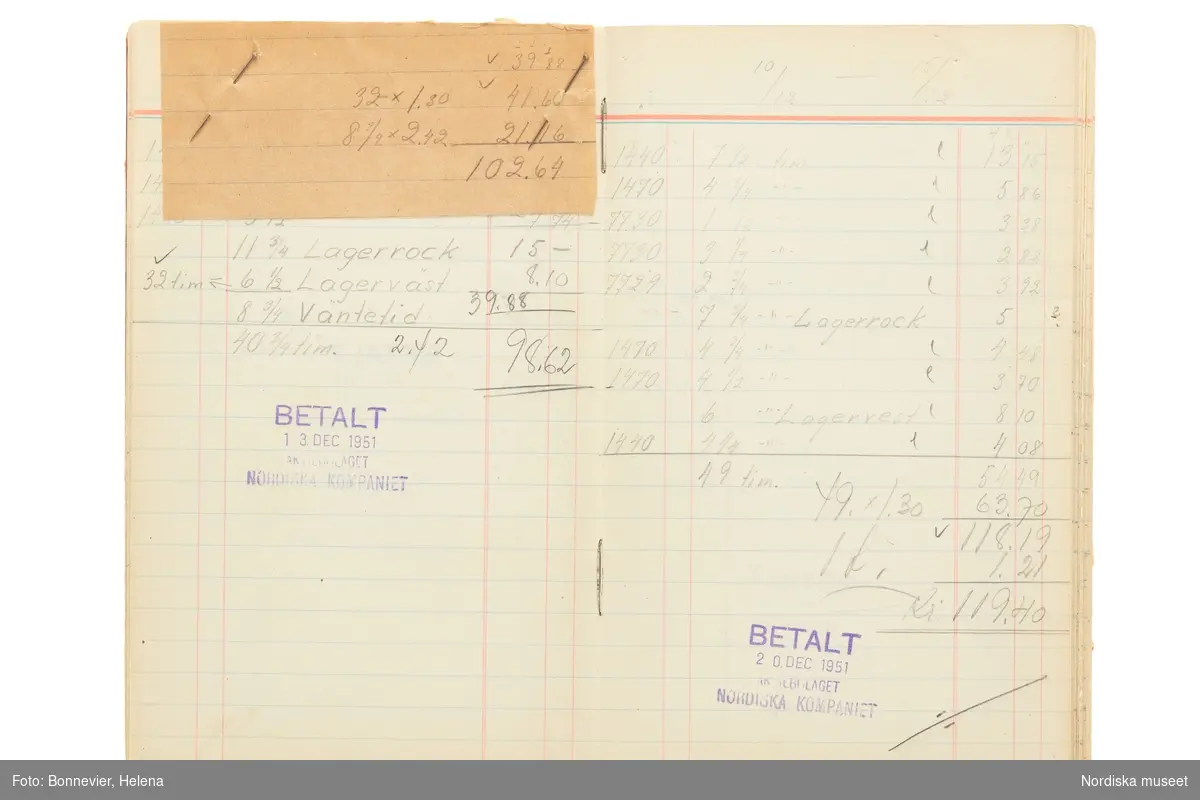 39.88
32 × 1.30 41.60
8 3/4 × 2.42 21.16
102.64
11 3/4 Lagerrock 15 —
32 tim 6 1/2 Lagerväst 8.10
8 3/4 Väntetid 39.88
40 3/4 tim. 2.42 98.62
BETALT
13. DEC 1951
AKTIEBOLAGET
NORDISKA KOMPANIET
10/12 —
1440 7 1/2 tim 13
1470 4 1/4 -"- 5 86
7790 1 1/2 -"- 3 38
7790 3 1/4 -"- 2
7729 2 3/4 -"- 3 92
7 3/4 -"- Lagerrock 5 ?
1470 4 3/4 -"- 4 48
1470 4 1/2 -"- 3 70
6 -"- Lagervest 8 10
1440 4 -"- 4 08
49 tim. 54 49
49. × 1.30 63.70
118.19
1.21
Kr 119.40
BETALT
20. DEC 1951
AKTIEBOLAGET
NORDISKA KOMPANIET
Foto: Bonnevier, Helena
Nordiska museet